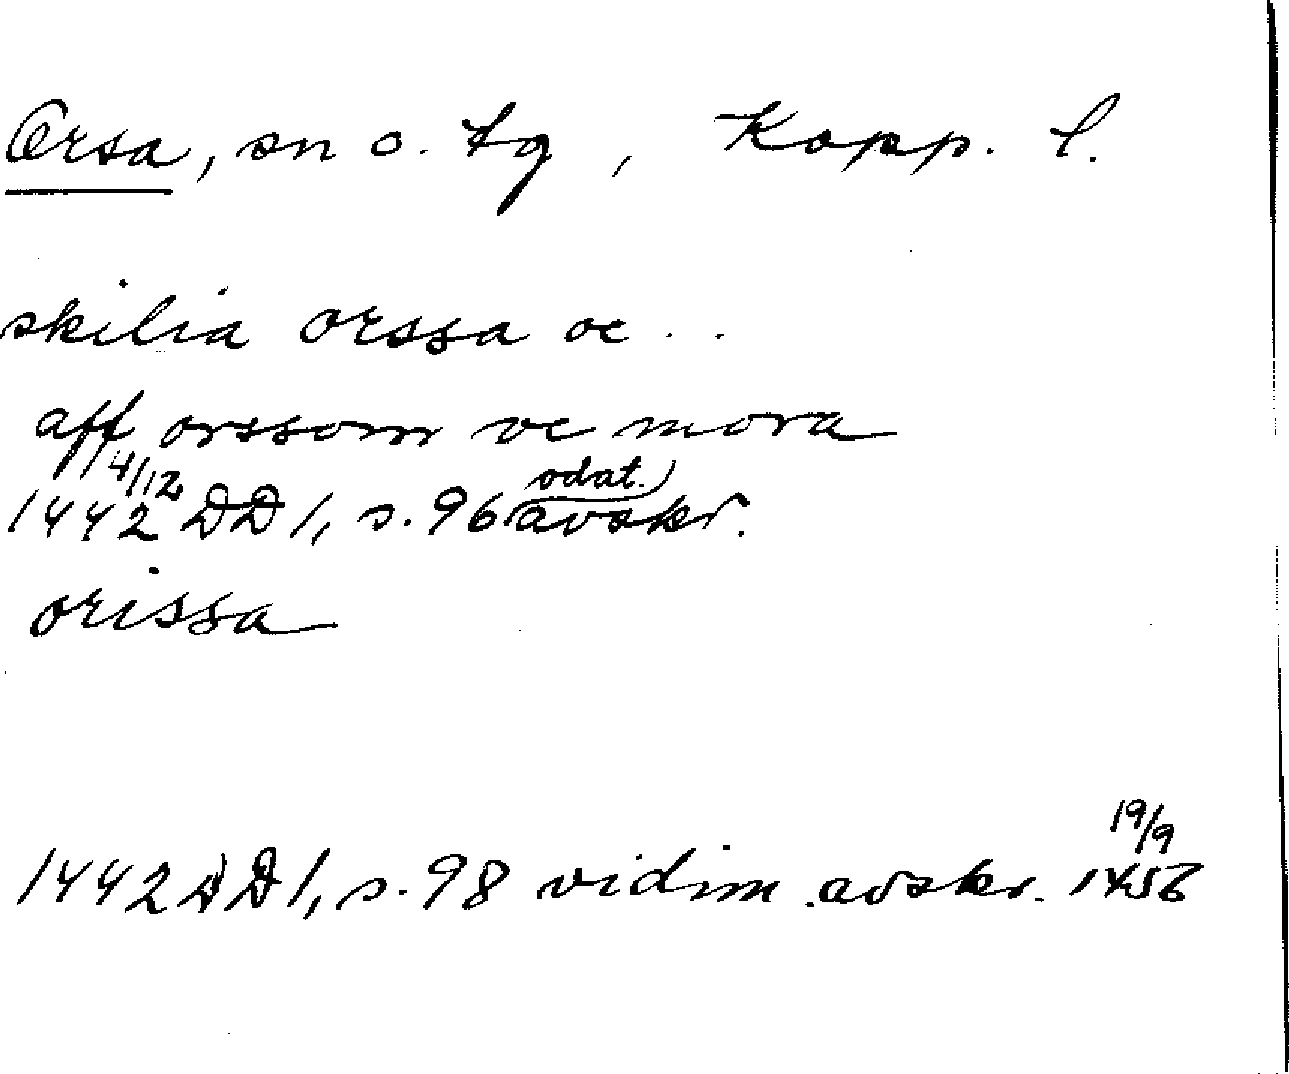 Orsa, sn o. tg, Kopp. l.
skilia orssa oc . .
aff orssom oc mora
1442 4/12 DD 1, s. 96 odat. avskr.
orissa
1442 DD 1, s. 98 vidim. avskr. 19/9 1456